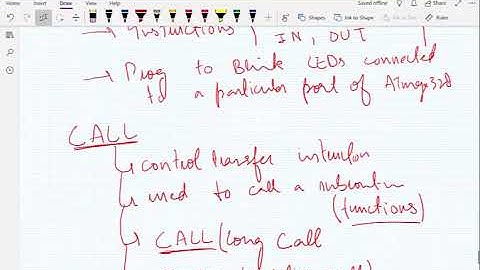 File Home Insert Draw View Help
Saved offline
Shapes Ink to Shape Ink to Text
→ Instructions IN, OUT
→ Prog to Blink LEDs connected
to a particular port of ATmega328
CALL
control transfer
used to call a
(functions)
CALL (Long Call